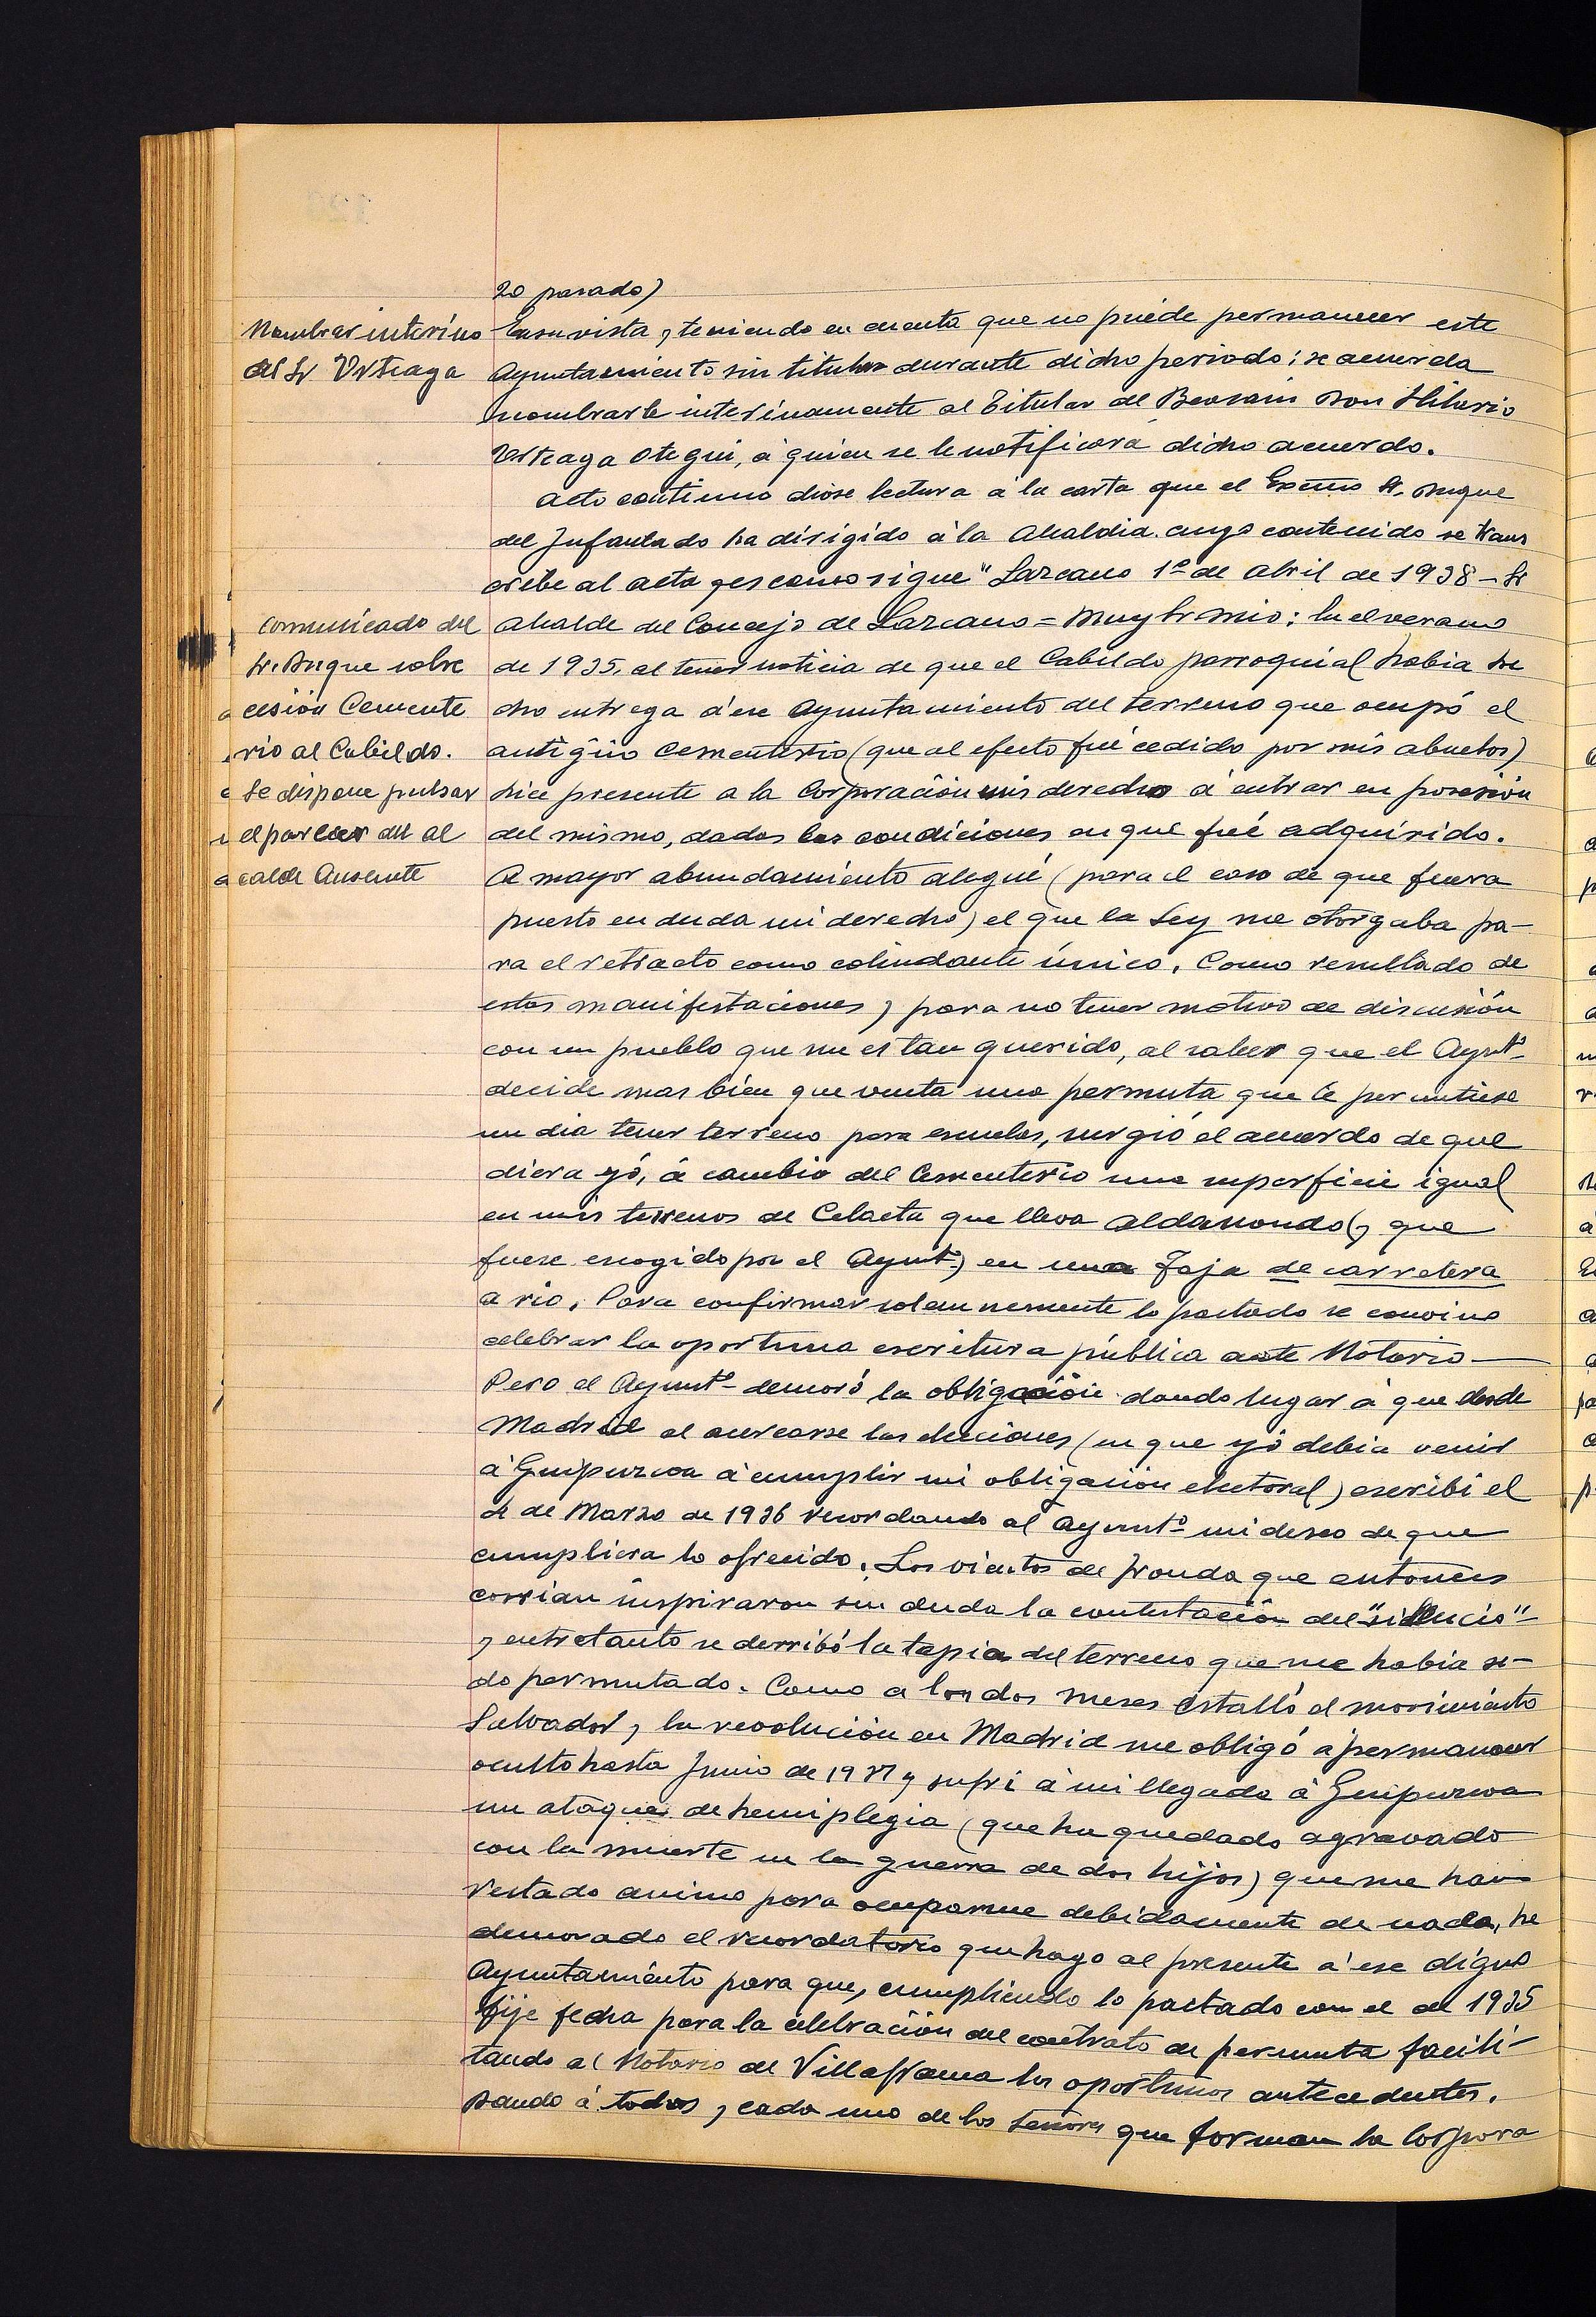 20 pasado)
Nombrar interino
al Sr Urteaga
En su vista, teniendo en cuenta que no puede permanecer este
Ayuntamiento sin titular durante dicho periodo; se acuerda
nombrarle interinamente al Titular de Beasain Don Hilario
Urteaga Otegui, á quien se le notificará dicho acuerdo.
Acto continuo dióse lectura á la carta que el Excmo Sr. Duque
del Infantado ha dirigido á la Alcaldia cuyo contenido se trans
cribe al acta y es como sigue "Lazcano 1º de Abril de 1938 - Sr
comunicado del
Sr. Duque sobre
cesión Cemente
rio al Cabildo.
Se dispone pulsar
el parecer del al
calde Ausente
Alcalde del Concejo de Lazcano = Muy Sr mio: En el verano
de 1935, al tener noticia de que el Cabildo parroquial habia he
cho entrega á ese Ayuntamiento del terreno que ocupó el
antigüo Cementerio (que al efecto fué cedido por mis abuelos)
hice presente a la Corporación mis derechos á entrar en posesión
del mismo, dadas las condiciones en que fué adquirido.
A mayor abundamiento alegué (para el caso de que fuera
puesto en duda mi derecho) el que la Ley me otorgaba pa-
ra el retracto como colindante único. Como resultado de
estas manifestaciones y para no tener motivo de discusión
con un pueblo que me es tan querido, al saber que el Ayuntº
decide mas bien que venta una permuta que le permitiese
un dia tener terreno para escuelas, surgió el acuerdo de que
diera yó, á cambio del Cementerio una superficie igual
en mis terrenos de Celaeta que lleva Aldasoro (y que
fuese escogido por el Ayuntº) en una faja de carretera
a rio. Para confirmar solemnemente lo pactado se convino
celebrar la oportuna escritura pública ante Notario—
Pero el Ayuntº demoró la obligación dando lugar á que desde
Madrid al acercarse las elecciones (en que yó debia venir
á Guipuzcoa á cumplir mi obligación electoral) escribí el
4 de Marzo de 1936 recordando al Ayuntº mi deseo de que
cumpliera lo ofrecido. Los vientos de fronda que entonces
corrian inspiraron sin duda la contestación del "silencio"
y entretanto se derribó la tapia del terreno que me habia si-
do permutado. Como a los dos meses estalló el movimiento
Salvador, y la revolución en Madrid me obligó á permanecer
oculto hasta Junio de 1937 y sufrí á mi llegada á Guipuzcoa
un ataque de hemiplegia (que ha quedado agravado
con la muerte en la guerra de dos hijos) que me han
restado animo para ocuparme debidamente de nada, he
demorado el recordatorio que hago al presente á ese digno
Ayuntamiento para que, cumpliendo lo pactado con el de 1935
fije fecha para la celebración del contrato de permuta facili-
tando al Notario de Villafranca los oportunos antecedentes.
Dando á todos y cada uno de los Señores que forman la Corpora